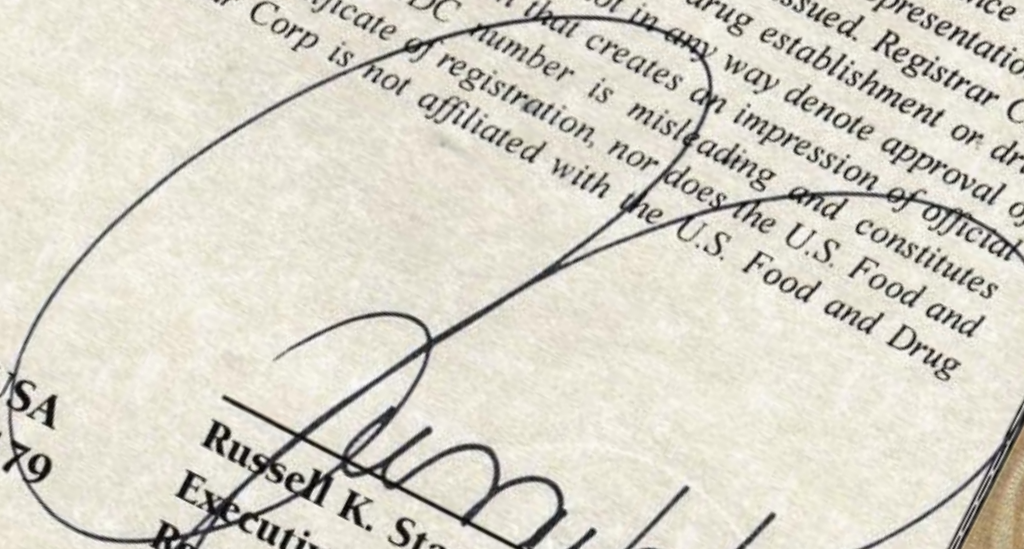 nce
presentatio
issued. Registrar C
drug establishment or dr
not in any way denote approval of
that creates an impression of official
DC number is misleading and constitutes
ificate of registration, nor does the U.S. Food and
r Corp is not affiliated with the U.S. Food and Drug
USA
79
Russell K. Sta
Executiv